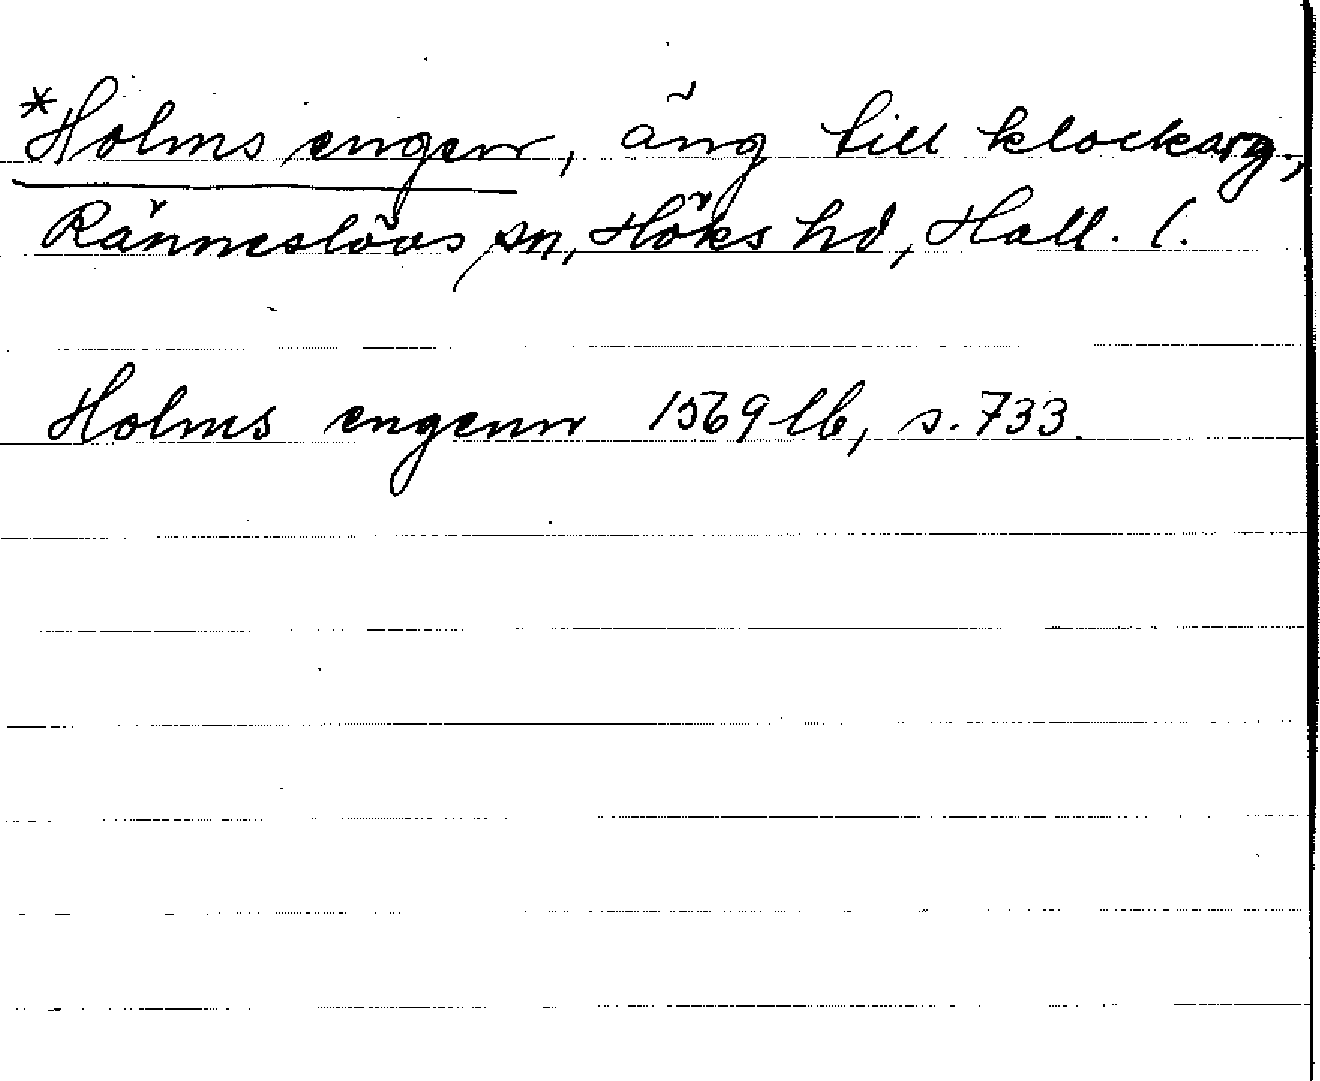 *Holms engen, äng till klockarg.,
Ränneslövs sn, Höks hd, Hall. l.
Holms engenn 1569 lb, s. 733.